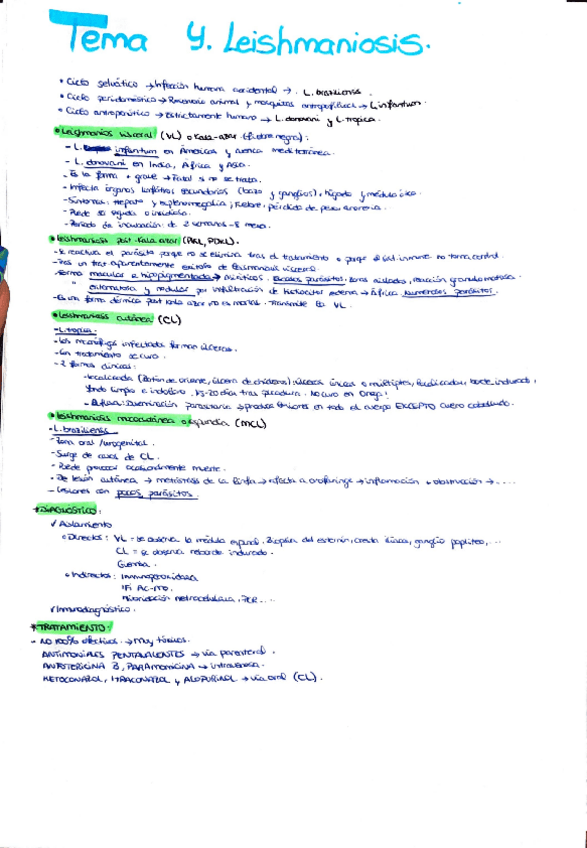 Tema 4. Leishmaniosis.
• Ciclo selvático → Infección humana accidental → L. braziliensis.
• Ciclo peridoméstico → Reservorio animal y mosquitos antropofílicos → L. infantum.
• Ciclo antroponótico → Estrictamente humano → L. donovani y L. tropica.
• Leishmaniosis visceral (VL) o Kala-azar (fiebre negra):
- L. infantum en Américas y cuenca mediterránea.
- L. donovani en India, África y Asia.
- Es la forma + grave → Fatal si no se trata.
- Infecta órganos linfáticos secundarios (bazo y ganglios), hígado y médula ósea.
- Síntomas: hepato y esplenomegalia, fiebre, pérdida de peso, anemia.
- Puede ser aguda o insidiosa.
- Periodo de incubación: de 2 semanas - 8 meses.
• Leishmaniosis post-kala azar (PKL, PDKL).
- Se reactiva el parásito porque no se elimina tras el tratamiento o porque el sist. inmune no toma control.
- Tras un trat. aparentemente exitoso de leishmaniosis visceral.
- Forma macular e hipopigmentada → Asiáticos. Escasos parásitos. Zonas aisladas, reacción granulomatosa.
" eritematosa y nodular por infiltración de histiocitos → África. Numerosos parásitos.
- Es una forma dérmica post kala azar no es mortal. Transmite la VL.
• Leishmaniosis cutánea (CL)
- L. tropica.
- Los macrófagos infectados forman úlceras.
- Sin tratamiento se cura.
- 2 formas clínicas:
- Localizada (Botón de oriente, úlcera de chicleros): úlceras únicas o múltiples, borde indurado, fondo limpio e indoloro. 15-20 días tras picadura. No cura en Oreja!
- Difusa: Diseminación parasitaria → produce tumores en todo el cuerpo EXCEPTO cuero cabelludo.
• Leishmaniosis mucocutánea o espundia (MCL)
- L. braziliensis.
- Zona oral / urogenital.
- Surge de casos de CL.
- Puede provocar ocasionalmente muerte.
- De lesión cutánea → metástasis de la linfa → afecta a orofaringe → inflamación + obstrucción → ....
- Lesiones con pocos parásitos.
* DIAGNÓSTICO:
✓ Aislamiento
• Directos: VL = se observa la médula espinal. Biopsia del esternón, cresta ilíaca, ganglio poplíteo, ...
CL = se observa reborde indurado.
Giemsa.
• Indirectos: Inmunoperoxidasa
IFI AC-mo.
Hibridación, PCR ....
✓ Inmunodiagnóstico.
* TRATAMIENTO:
- NO 100% efectivos. → Muy tóxicos.
ANTIMONIALES PENTAVALENTES → vía parenteral.
ANFOTERICINA B, PARAMOMICINA → intravenosa.
KETOCONAZOL, ITRACONAZOL y ALOPURINOL → vía oral (CL).